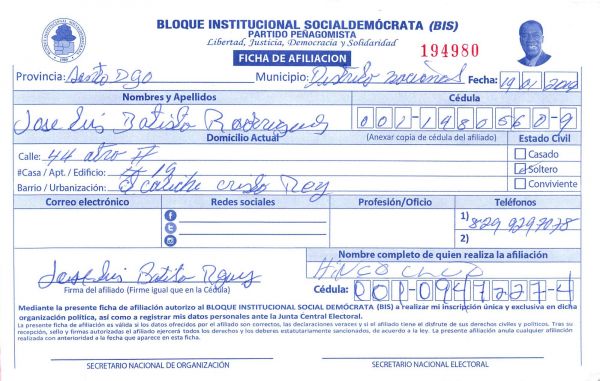 BLOQUE INSTITUCIONAL SOCIALDEMÓCRATA (BIS)
PARTIDO PEÑAGOMISTA
Libertad, Justicia, Democracia y Solidaridad
FICHA DE AFILIACION
194980
Provincia: Santo Dgo Municipio: Distrito nacional Fecha: 19 01
Nombres y Apellidos Cédula
Jose Luis Batista Rodriguez 001-1980560-9
Domicilio Actual (Anexar copia de cédula del afiliado) Estado Civil
Calle: 44
#Casa / Apt. / Edificio: # 19
Barrio / Urbanización: caliche cristo Rey
Casado
Soltero
Conviviente
Correo electrónico Redes sociales Profesión/Oficio Teléfonos
1) 829 9297078
2)
Nombre completo de quien realiza la afiliación
Jose Luis Batista
Firma del afiliado (Firme igual que en la Cédula)
Cédula: 001-0947227-4
Mediante la presente ficha de afiliación autorizo al BLOQUE INSTITUCIONAL SOCIAL DEMÓCRATA (BIS) a realizar mi inscripción única y exclusiva en dicha
organización política, así como a registrar mis datos personales ante la Junta Central Electoral.
La presente ficha de afiliación es válida si los datos ofrecidos por el afiliado son correctos, las declaraciones veraces y si el afiliado tiene el disfrute de sus derechos civiles y políticos. Tras su
recepción, sello y firmas autorizadas el afiliado ejercerá todos los derechos y los deberes estatutariamente sancionados, de acuerdo a la ley. La presente afiliación anula cualquier afiliación
realizada con anterioridad a la fecha que aparece en esta ficha.
SECRETARIO NACIONAL DE ORGANIZACIÓN SECRETARIO NACIONAL ELECTORAL